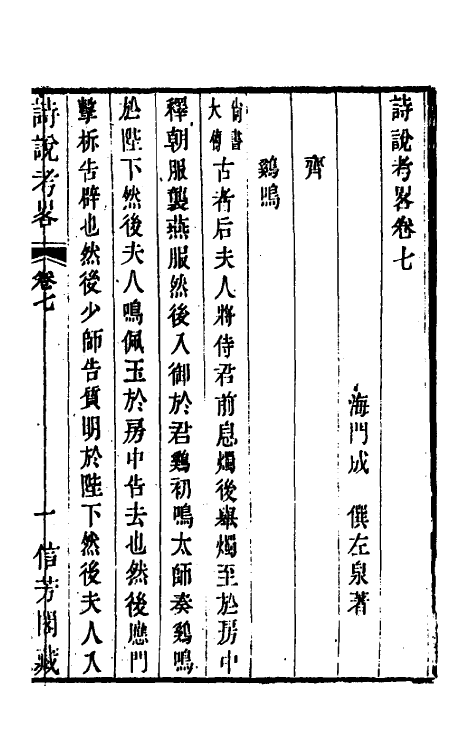 詩說考畧卷七
海門成　僎左泉著
齊
鷄鳴
尚書大傳古者后夫人將侍君前息燭後舉燭至於房中
釋朝服襲燕服然後入御於君鷄初鳴太師奏鷄鳴
於陛下然後夫人鳴佩玉於房中告去也然後應門
擊柝告辟也然後少師告質明於陛下然後夫人入
詩說考畧　卷七　一　信芳閣藏